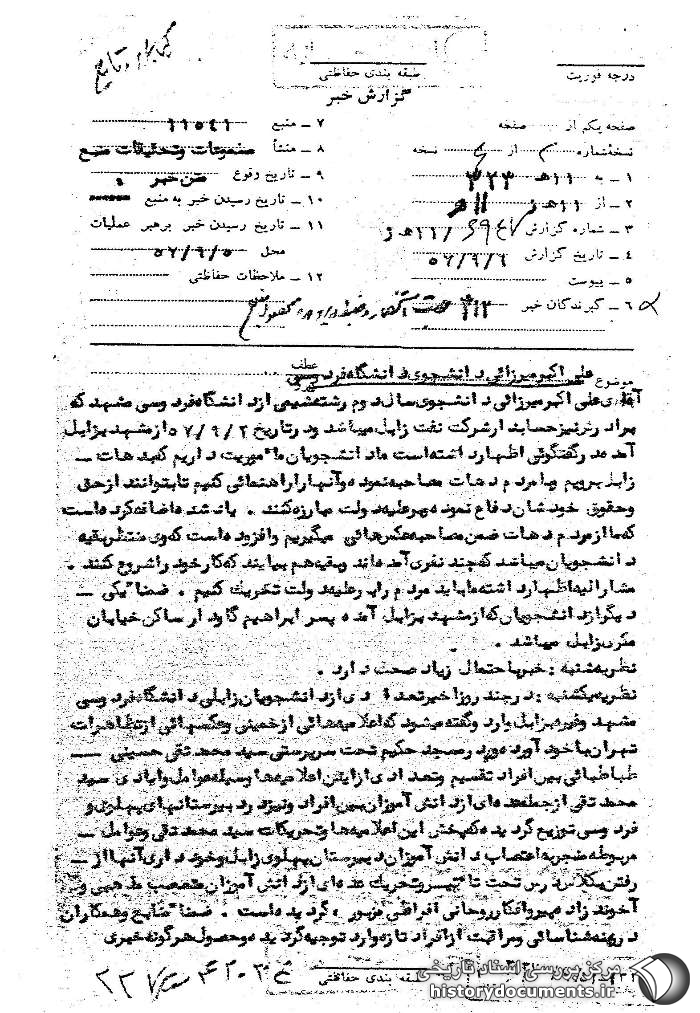 طبقه بندی حفاظتی
گزارش خبر
درجه فوریت
صفحه یکم از صفحه
نسخه شماره از نسخه
۱ – به ۱۱ هـ ۳۲۳
۲ – از ۱۱ هـ
۳ – شماره گزارش
۴ – تاریخ گزارش ۵۷/۹/۶
۵ – پیوست
۶ – گیرندگان خبر ۳۱۲
۷ – منبع ۱۱۵۴۱
۸ – منشأ مسموعات و تحقیقات منبع
۹ – تاریخ وقوع متن خبر
۱۰ – تاریخ رسیدن خبر به منبع
۱۱ – تاریخ رسیدن خبر برهبر عملیات
محل ۵۷/۹/۵
۱۲ – ملاحظات حفاظتی
موضوع علی اکبر میرزائی دانشجوی دانشگاه فردوسی
عطف
آقای علی اکبر میرزائی دانشجوی سال دوم رشته شیمی از دانشگاه فردوسی مشهد که
برادرش نیز حسابدار شرکت نفت زابل میباشد و در تاریخ ۵۷/۹/۲ از مشهد بزابل
آمده در گفتگوئی اظهار داشته است ما دانشجویان ماموریت داریم که بدهات –
زابل برویم و با مردم دهات مصاحبه نموده و آنها را راهنمائی کنیم تا بتوانند از حق
و حقوق خودشان دفاع نموده و بر علیه دولت مبارزه کنند . یاد شده اضافه کرده است
که ما از مردم دهات ضمن مصاحبه عکس هائی میگیریم و افزوده است که وی منتظر بقیه
دانشجویان میباشد که چند نفری آمده اند و بقیه هم بیایند که کار خود را شروع کنند .
مشارالیه اظهار داشته ما باید مردم را بر علیه دولت تحریک کنیم . ضمنا" یکی –
دیگر از دانشجویان که از مشهد بزابل آمده پسر ابراهیم گاودار ساکن خیابان
زابل میباشد .
نظریه شنبه : خبر باحتمال زیاد صحت دارد .
نظریه یکشنبه : در چند روز اخیر تعدادی از دانشجویان زابلی دانشگاه فردوسی
مشهد وغیره بزابل وارد و گفته میشود که اعلامیه هائی از خمینی و عکسهائی از تظاهرات
تهران با خود آورده و در مسجد حکیم تحت سرپرستی سید محمد تقی حسینی –
طباطبائی بین افراد تقسیم و تعدادی از این اعلامیه ها وسیله عوامل و ایادی سید
محمد تقی از جمله عده ای از دانش آموزان بین افراد ونیز در دبیرستانهای پهلوی و
فردوسی توزیع گردیده که پخش این اعلامیه ها و تحریکات سید محمد تقی و عوامل –
مربوطه منجر به اعتصاب دانش آموزان دبیرستان پهلوی زابل و خودداری آنها از –
رفتن بکلاس درس تحت تاثیر و تحریک عده ای از دانش آموزان متعصب مذهبی و
آخوند زاده و پیرو افکار روحانی افراطی مزبور گردیده است . ضمنا" منابع و همکاران
در زمینه شناسائی و مراقبت از افراد تازه وارد توجیه گردیده و حصول هر گونه خبری
طبقه بندی حفاظتی
مرکز بررسی اسناد تاریخی
historydocuments.ir